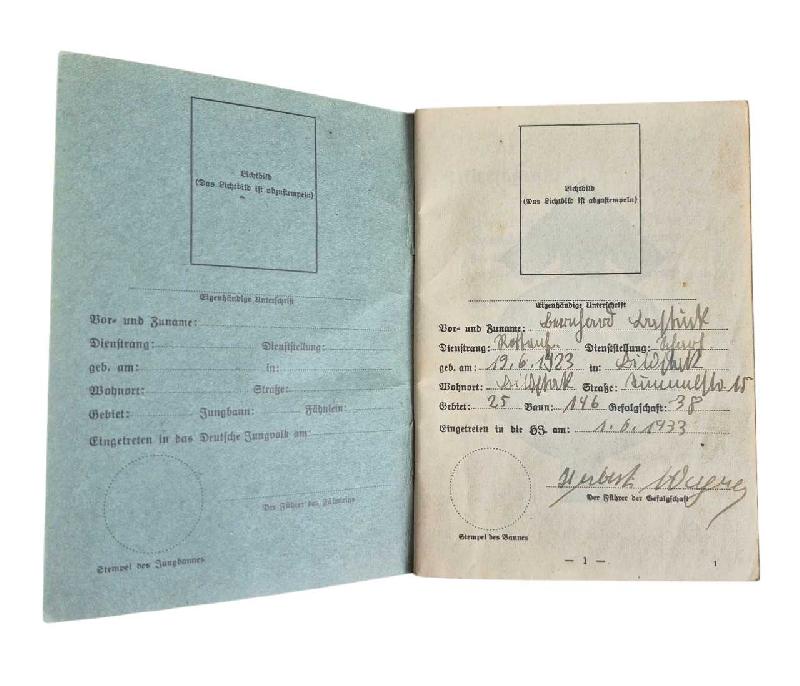 Lichtbild
(Das Lichtbild ist abzustempeln)
Eigenhändige Unterschrift
Vor- und Zuname:
Dienstrang: Dienststellung:
geb. am: in:
Wohnort: Straße:
Gebiet: Jungbann: Fähnlein:
Eingetreten in das Deutsche Jungvolk am:
Der Führer des Fähnleins
Stempel des Jungbannes
Lichtbild
(Das Lichtbild ist abzustempeln)
Eigenhändige Unterschrift
Vor- und Zuname: Bernhard
Dienstrang: Dienststellung:
geb. am: 19.6.1923 in: Bildstock
Wohnort: Bildstock Straße:
Gebiet: 25 Bann: 146 Gefolgschaft: 38
Eingetreten in die HJ. am: 1.6.1933
Herbert
Der Führer der Gefolgschaft
Stempel des Bannes
— 1 — 1